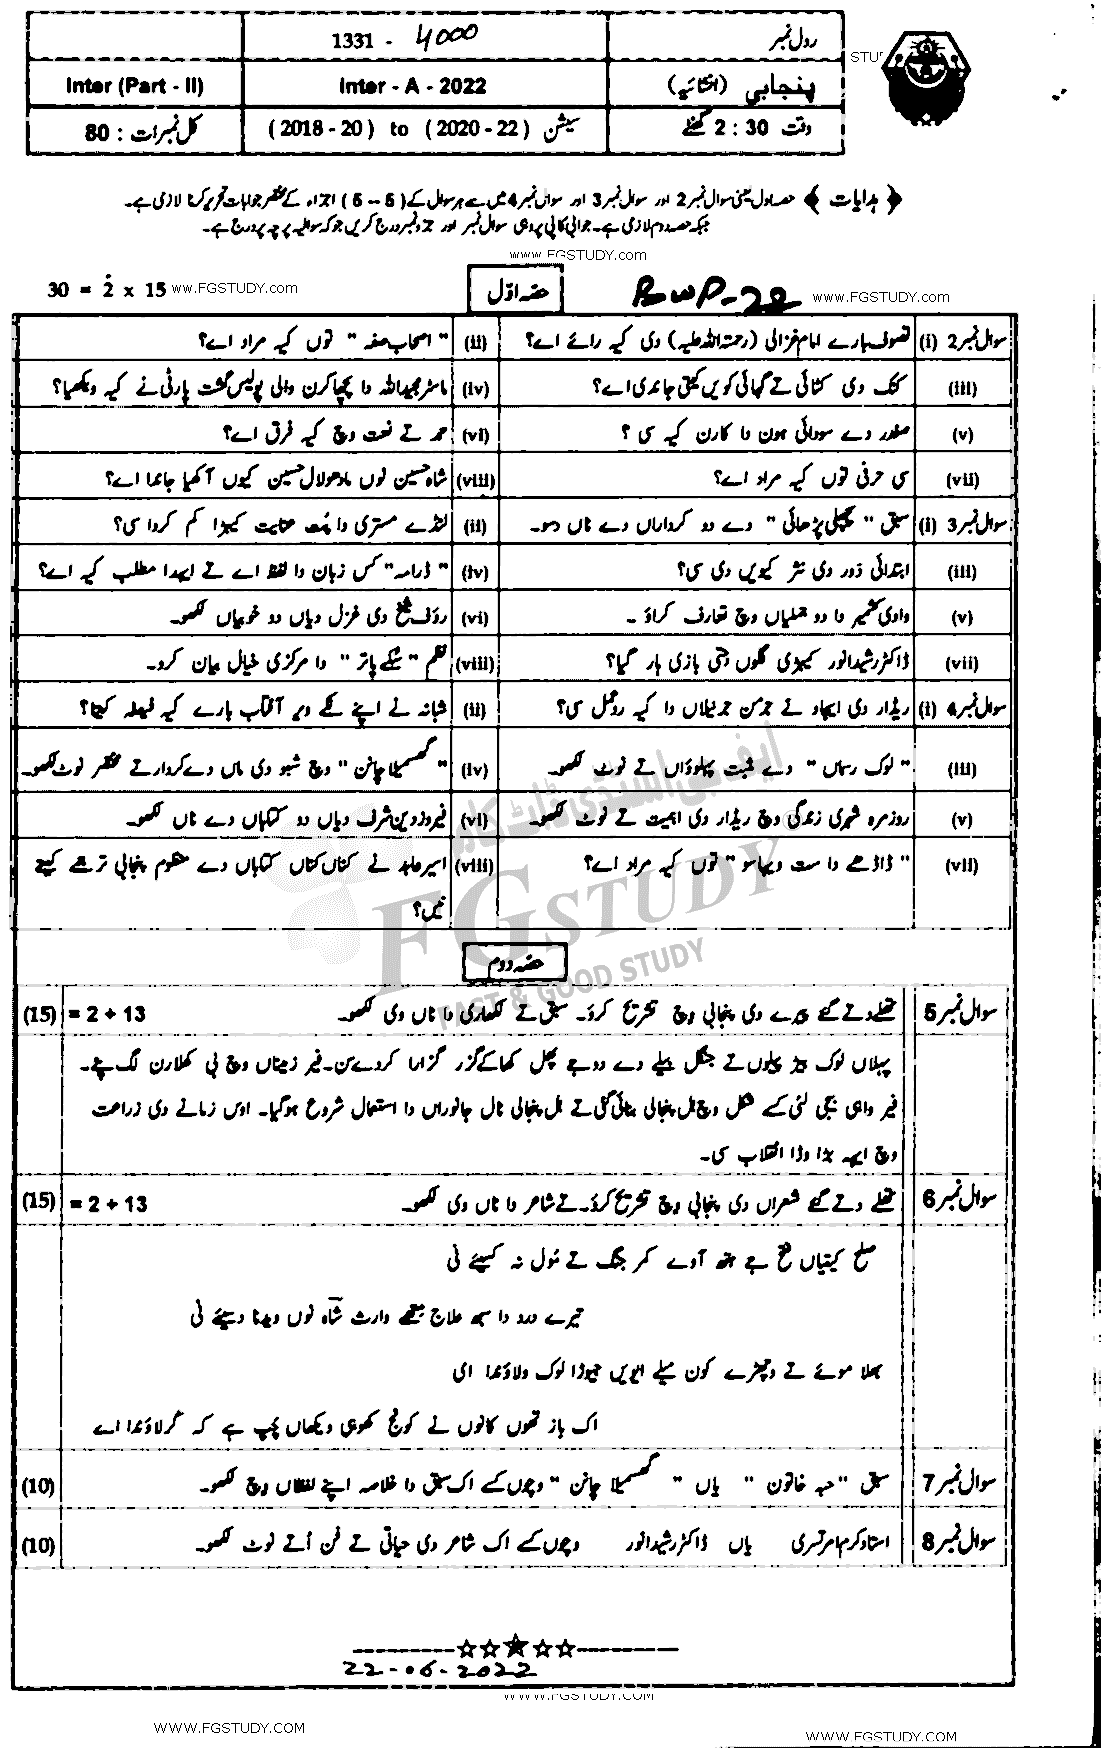 رول نمبر 1331 - 4000
پنجابی (انشائیہ) Inter - A - 2022 Inter (Part - II)
وقت 2 : 30 گھنٹے سیشن (2020 - 22) to (2018 - 20) کل نمبرات : 80
﴿ ہدایات ﴾ حصہ اول یعنی سوال نمبر 2 اور سوال نمبر 3 اور سوال نمبر 4 میں سے ہر سوال کے (5 -- 5) اجزاء کے مختصر جوابات تحریر کرنا لازمی ہے۔
جبکہ حصہ دوم لازمی ہے۔ جوابی کاپی پر وہی سوال نمبر اور جزو نمبر درج کریں جو کہ سوالیہ پرچہ پر درج ہے۔
www.FGSTUDY.com
BWP-22 حصہ اول 30 = 2 x 15
ww.FGSTUDY.com www.FGSTUDY.com
سوال نمبر 2 (i) تصوف بارے امام غزالی (رحمتہ اللہ علیہ) دی کیہ رائے اے؟ (ii) " اصحاب صفہ " توں کیہ مراد اے؟
(iii) کنک دی کٹائی تے گہائی کویں کیتی جاندی اے؟ (iv) ماسٹر عبداللہ دا پچھا کرن والی پولیس گشت پارٹی نے کیہ ویکھیا؟
(v) صفدر دے سودائی ہون دا کارن کیہ سی ؟ (vi) حمد تے نعت وچ کیہ فرق اے؟
(vii) سی حرفی توں کیہ مراد اے؟ (viii) شاہ حسین نوں مادھولال حسین کیوں آکھیا جاندا اے؟
سوال نمبر 3 (i) سبق " پچھلی پڑھائی " دے دو کرداراں دے ناں دسو۔ (ii) لنڈے مستری دا پت عنایت کیہڑا کم کردا سی؟
(iii) ابتدائی دور دی نثر کیویں دی سی؟ (iv) " ڈرامہ " کس زبان دا لفظ اے تے ایہدا مطلب کیہ اے؟
(v) وادی کشمیر دا دو جملیاں وچ تعارف کراؤ ۔ (vi) رؤف شیخ دی غزل دیاں دو خوبیاں لکھو۔
(vii) ڈاکٹر رشید انور کیہڑی گلوں جتی بازی ہار گیا؟ (viii) نظم " سُکے پتر " دا مرکزی خیال بیان کرو۔
سوال نمبر 4 (i) ریڈار دی ایجاد تے جرمن جرنیلاں دا کیہ ردعمل سی؟ (ii) شبانہ نے اپنے نکے ویر آفتاب بارے کیہ فیصلہ کیتا؟
(iii) " لوک رسماں " دے مثبت پہلوؤاں تے نوٹ لکھو۔ (iv) " گھسمیلا چانن " وچ شبو دی ماں دے کردار تے مختصر نوٹ لکھو۔
(v) روزمرہ شہری زندگی وچ ریڈار دی اہمیت تے نوٹ لکھو۔ (vi) فیروز دین شرف دیاں دو کتاباں دے ناں لکھو۔
(vii) " ڈاڈھے دا ست ویہاسو " توں کیہ مراد اے؟ (viii) اسیر عابد نے کناں کناں کتاباں دے منظوم پنجابی ترجمے کیتے
نیں؟
حصہ دوم
سوال نمبر 5 تھلے دتے گئے پیرے دی پنجابی وچ تشریح کرو۔ سبق تے لکھاری دا ناں وی لکھو۔ 13 + 2 = (15)
پہلاں لوک پیڑ پیلوں تے جنگل بیلے دے دوجے پھل کھا کے گزر گزارا کردے سن۔ فیر زمیناں وچ بی کھلارن لگ پئے۔
فیر واہی بیجی لئی کسے شکل وچ ہل پنجالی بنائی گئی تے ہل پنجالی نال جانوراں دا استعمال شروع ہوگیا۔ اوس زمانے دی زراعت
وچ ایہہ بڑا وڈا انقلاب سی۔
سوال نمبر 6 تھلے دتے گئے شعراں دی پنجابی وچ تشریح کرو۔ تے شاعر دا ناں وی لکھو۔ 13 + 2 = (15)
صلح کیتیاں فتح جے ہتھ آوے کر جنگ تے مول نہ کسیئے نی
تیرے درد دا سبھ علاج میتھے وارث شاہ نوں ویدنا دسیئے نی
بھلا موئے تے وچھڑے کون میلے ایویں جیوڑا لوک ولاؤندا ای
اک باز تھوں کانوں نے کونج کھوہی ویکھاں چپ ہے کہ کرلاؤندا اے
سوال نمبر 7 سبق "حبہ خاتون " یاں " گھسمیلا چانن " وچوں کسے اک سبق دا خلاصہ اپنے لفظاں وچ لکھو۔ (10)
سوال نمبر 8 استاد کرم امرتسری یاں ڈاکٹر رشید انور وچوں کسے اک شاعر دی حیاتی تے فن اُتے نوٹ لکھو۔ (10)
22-06-2022
WWW.FGSTUDY.COM
WWW.FGSTUDY.COM WWW.FGSTUDY.COM
ایف جی اسٹڈی ڈاٹ کام
FGSTUDY
FAST & GOOD STUDY